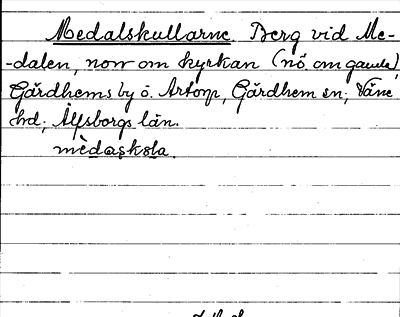 Medalskullarne. Berg vid Me-
-dalen, norr om kyrkan (nö. om gamla)
Gärdhems by ö. Artorp, Gärdhem sn; Väne
hd; Älfsborgs län.
mèdaskola.